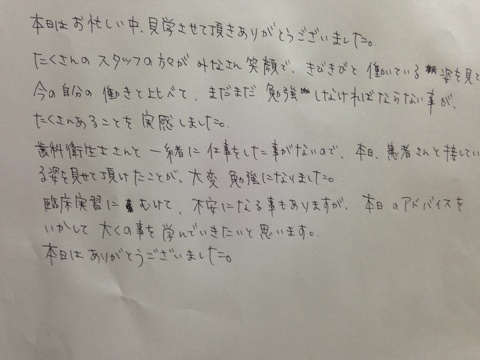 本日はお忙しい中、見学させて頂きありがとうございました。
たくさんのスタッフの方々がみなさん笑顔で、きびきびと働いている姿を見て
今の自分の働きと比べて、まだまだ勉強しなければならない事が、
たくさんあることを実感しました。
歯科衛生士さんと一緒に仕事をした事がないので、本日、患者さんと接してい
る姿を見せて頂けたことが、大変勉強になりました。
臨床実習にむけて、不安になる事もありますが、本日のアドバイスを
いかして多くの事を学んでいきたいと思います。
本日はありがとうございました。